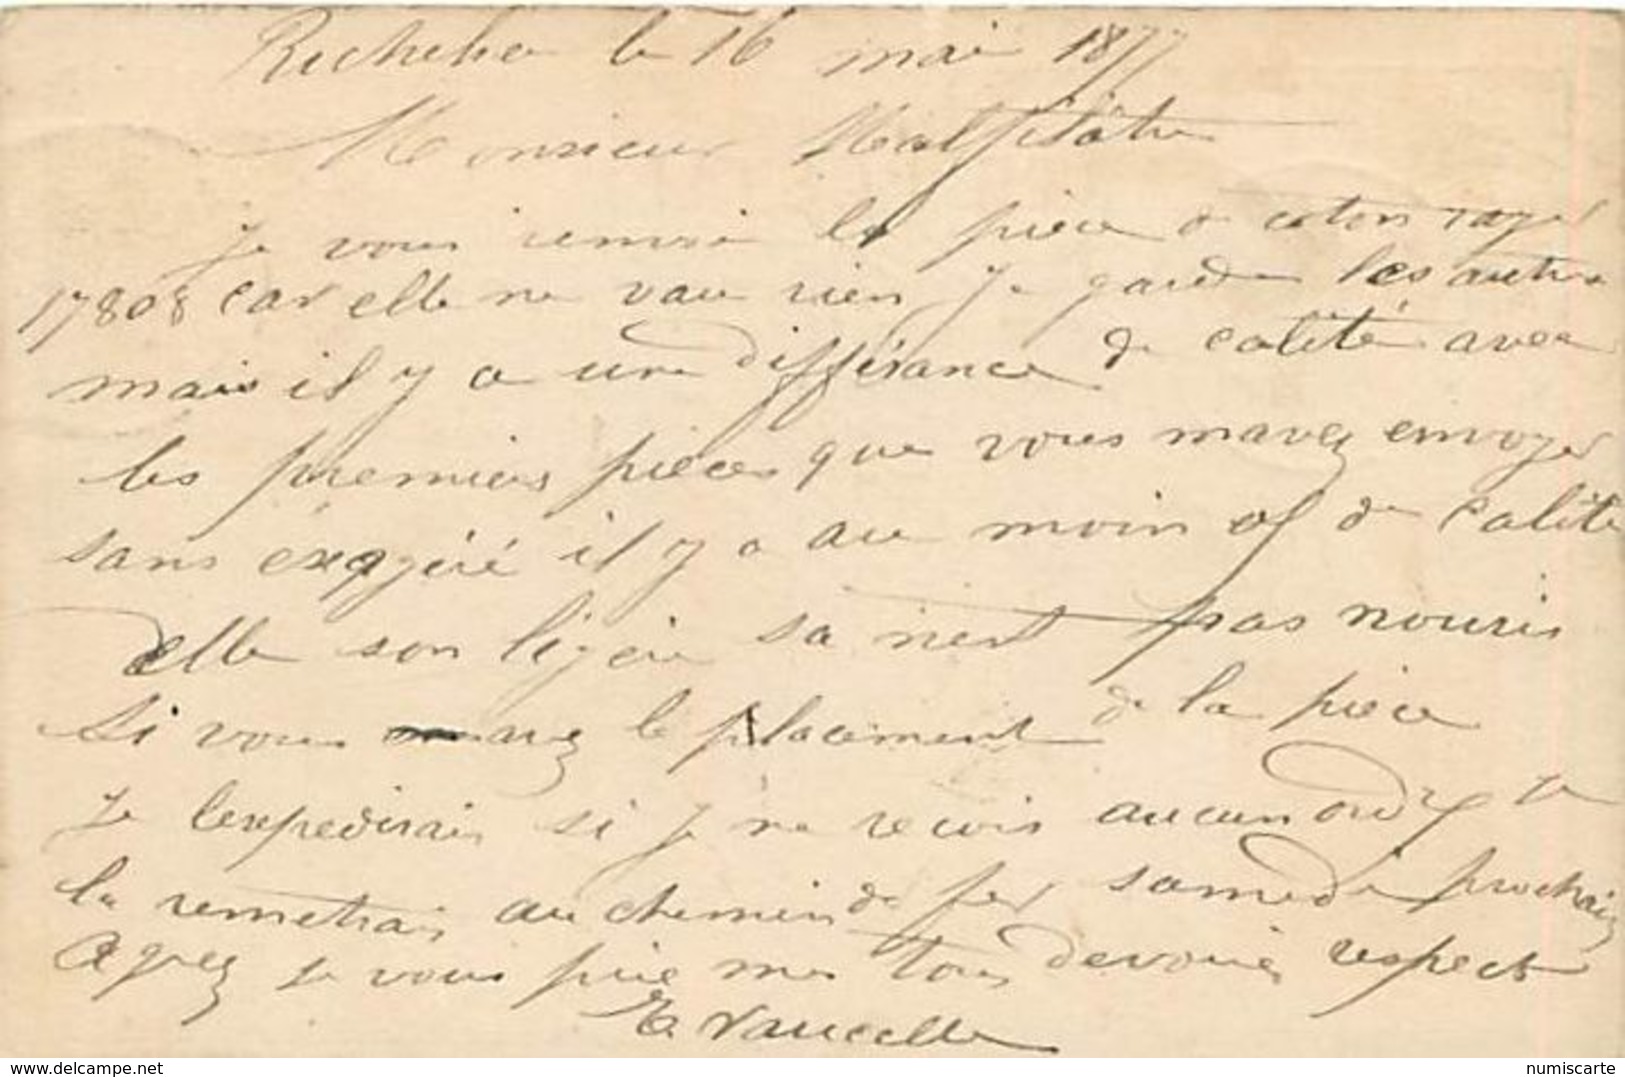 Richelieu le 16 mai 1877
Monsieur Malfilâtre
je vous renvoi la pièce de coton rayer
17808 car elle ne vau rien je garde les autre
mais il y a une différance de calité avec
les premiers pièces que vous mavez envoyer
sans éxagéré il y a au moin de calité
elle son ligère sa nest pas nouris
Si vous avez le placement de la pièce
je lexpedirais si je ne recois aucun ordre je
la remetrais au chemin de fer samedi prochain
agrez je vous prie mes tous devoirs respects
Vaucelle
www.delcampe.net
numiscarte